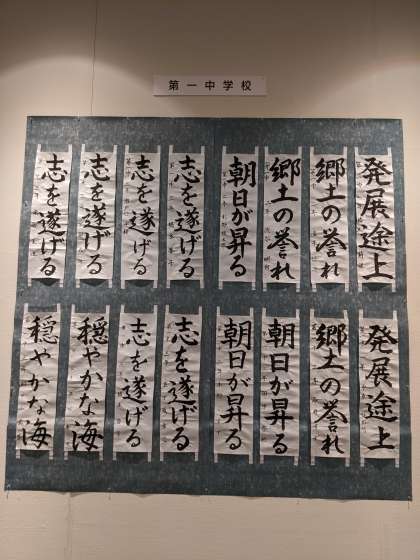 第一中学校
発展途上
郷土の誉れ
郷土の誉れ
朝日が昇る
志を遂げる
志を遂げる
志を遂げる
志を遂げる
発展途上
郷土の誉れ
朝日が昇る
朝日が昇る
志を遂げる
志を遂げる
穏やかな海
穏やかな海